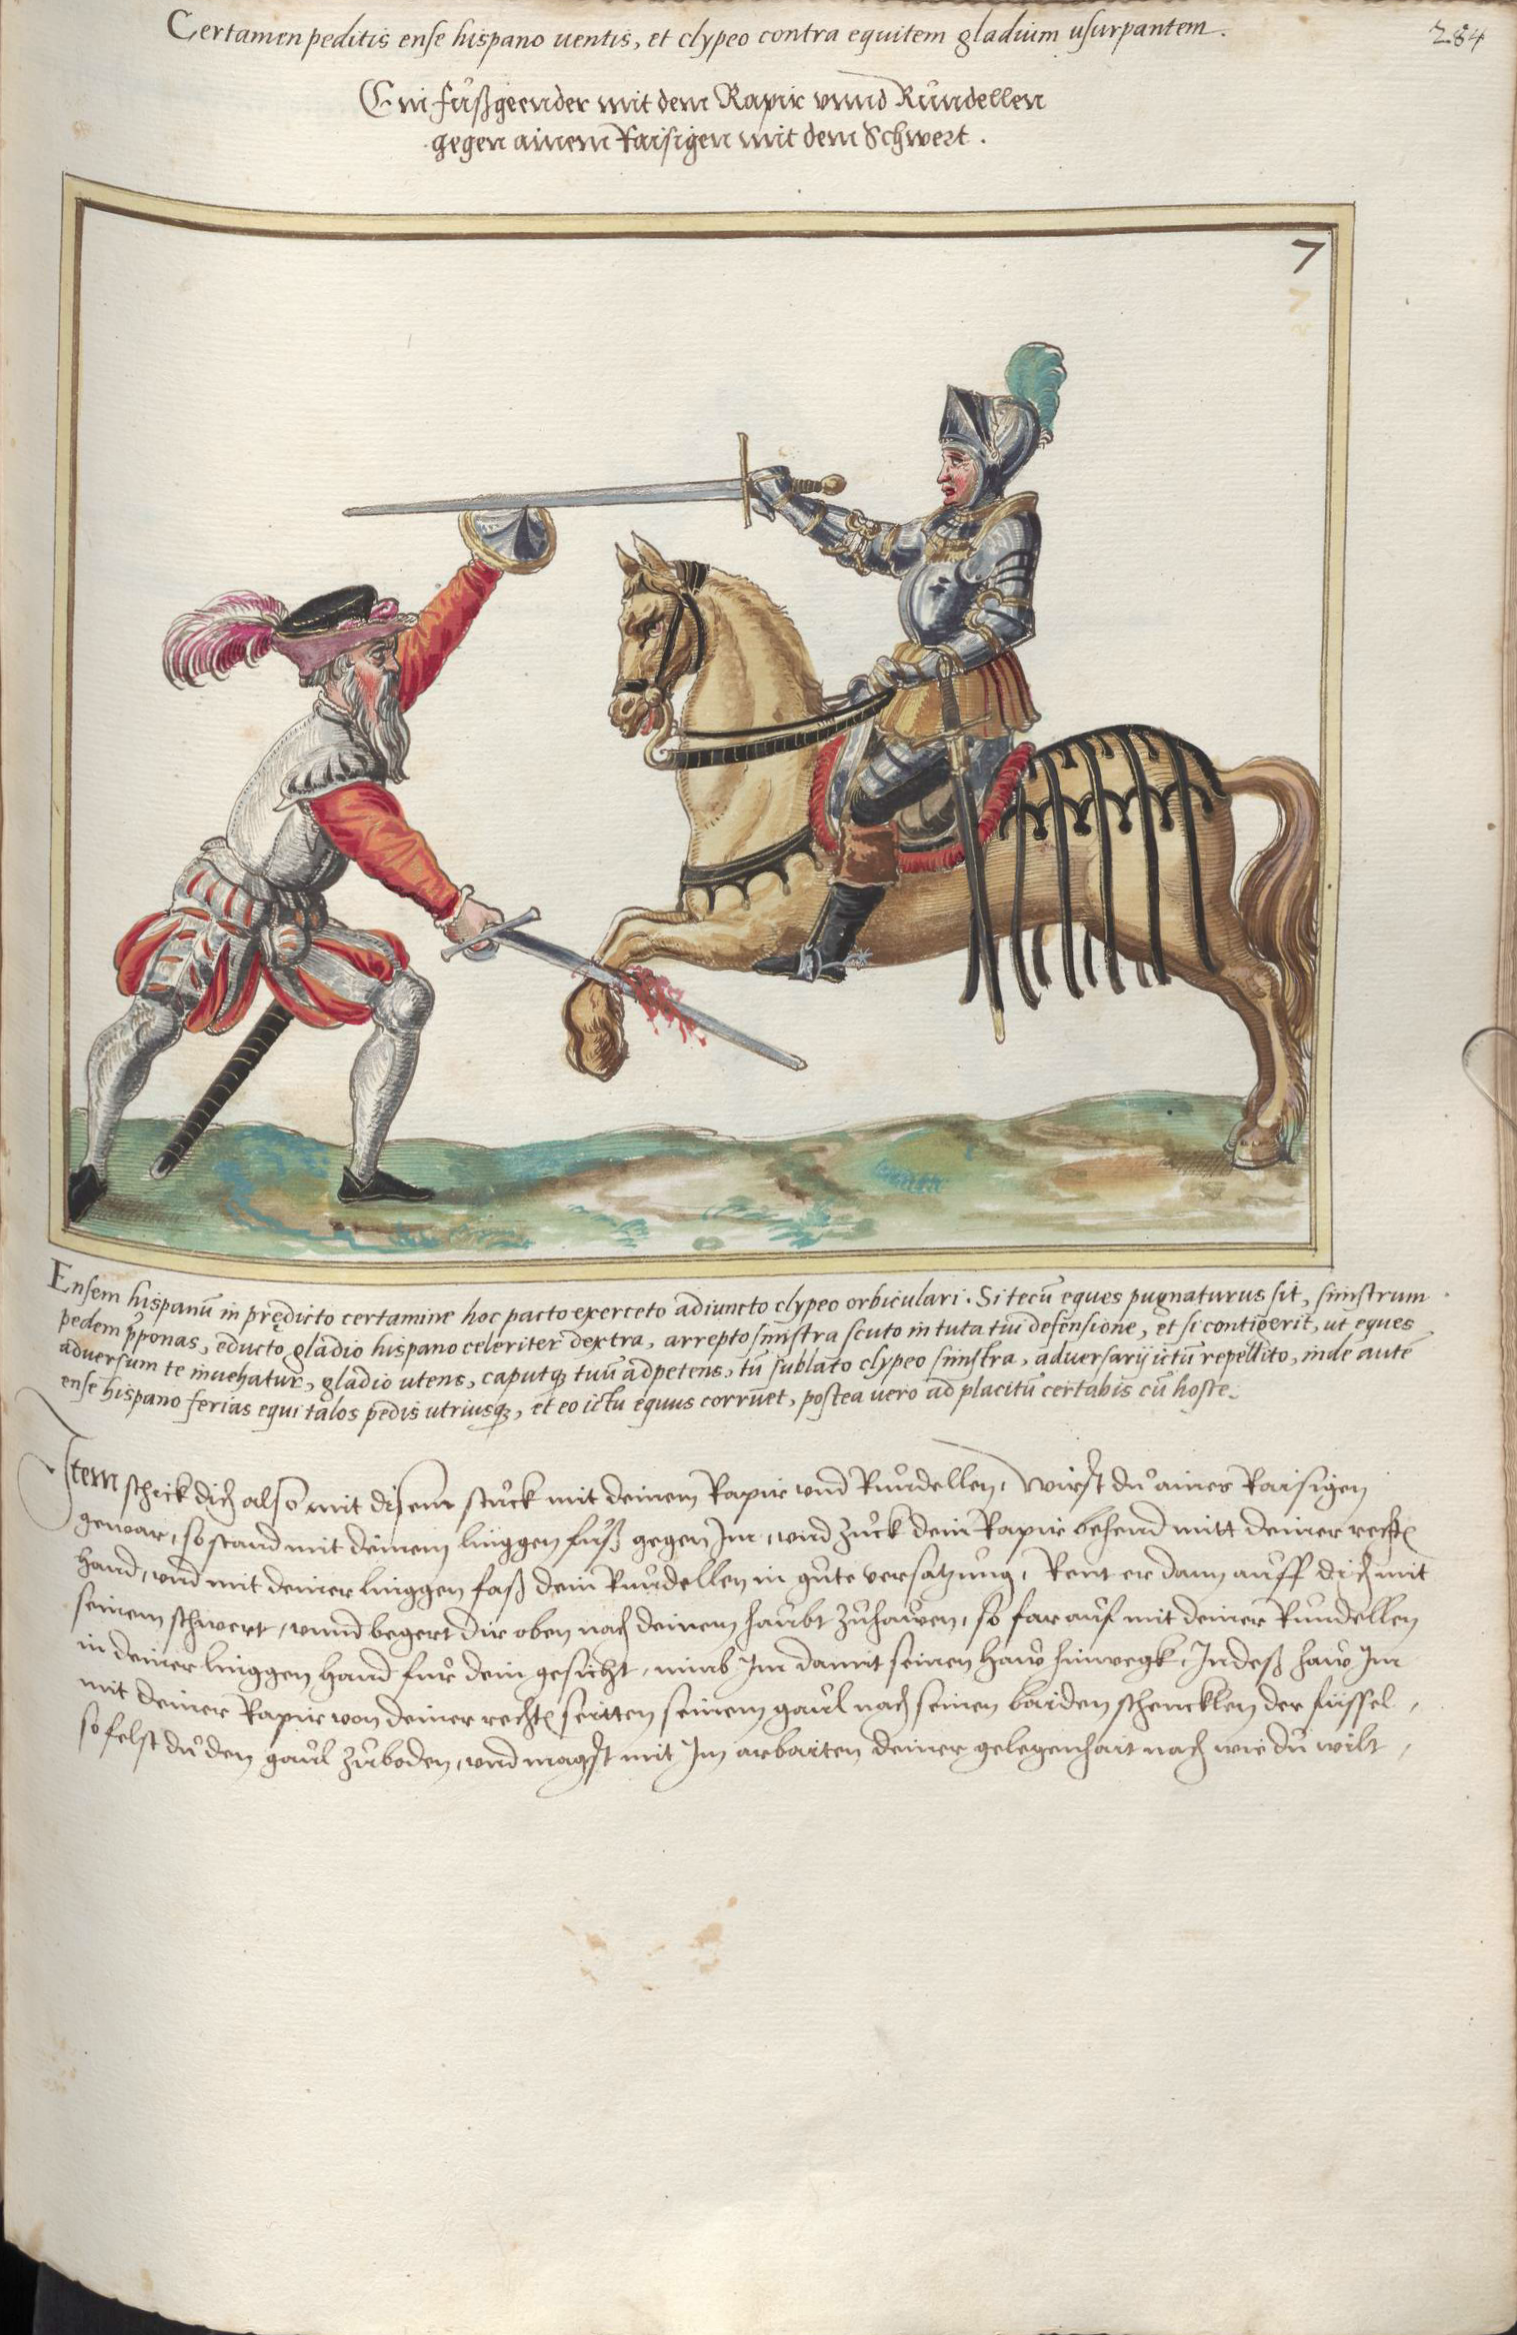 Certamen peditis ense hispano uentis, et clypeo contra equitem gladium usurpantem.
284
Ein fůßgeender mit dem Rapir vnnd Růndellen
gegen ainem Raisigen mit dem Schwert.
7
Ensem hispanū in prędicto certamine hoc pacto exerceto adiuncto clypeo orbiculari. Si tecū eques pugnaturus sit, sinistrum
pedem p̄ponas, educto gladio hispano celeriter dextra, arrepto sinistra scuto in tuta tui defensione, et si contigerit, ut eques
aduersum te inuehatur, gladio utens, caputq₃ tuū adpetens, tū sublato clypeo sinistra, aduersarij ictū repellito, inde autē
ense hispano ferias equi talos pedis utriusq₃, et eo ictu equus corruet, postea uero ad placitū certabis cū hoste.
Item schick dich also mit disem stůck mit deinem Rapir vnd Růndellen, wirst dů aines Raisigen
gewar, so stand mit deinem linggen fůß gegen Im, vnd zůck dein Rapir behend mitt deiner rechtē
hand, vnd mit deiner linggen faß dein Rundellen in gůte versatzung, Rent er dann auff dich mit
seinem schwert, vnnd begert dir oben nach deinem haubt zůhawen, so far auf mit deiner Rundellen
in deiner linggen hand für dein gesicht, nimb Im damit seinen haw hinwegk, Indeß haw Im
mit deiner Rapir von deiner rechtē seitten seinem gaul nach seinen baiden schencklen der füssel,
so felst dů den gaul zůboden, vnd magst mit Im arbaiten deiner gelegenhait nach wie dů wilt,